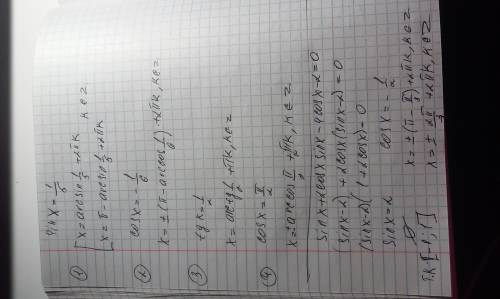 ① sin x = 1/6
[ x = arcsin 1/6 + 2πk, k ∈ Z
[ x = π - arcsin 1/6 + 2πk
② cos x = -1/6
x = ±(π - arccos 1/6) + 2πk, k ∈ Z
③ tg x = 1/2
x = arctg 1/2 + πk, k ∈ Z
④ cos x = π/2
x = ± arccos π/2 + 2πk, k ∈ Z
sin x + 2cos x sin x - 4cos x - 2 = 0
(sin x - 2) + 2cos x (sin x - 2) = 0
(sin x - 2)(1 + 2cos x) = 0
sin x = 2 cos x = -1/2
∅ x = ±(π - π/3) + 2πk, k ∈ Z
т.к. [-1; 1] x = ± 2π/3 + 2πk, k ∈ Z